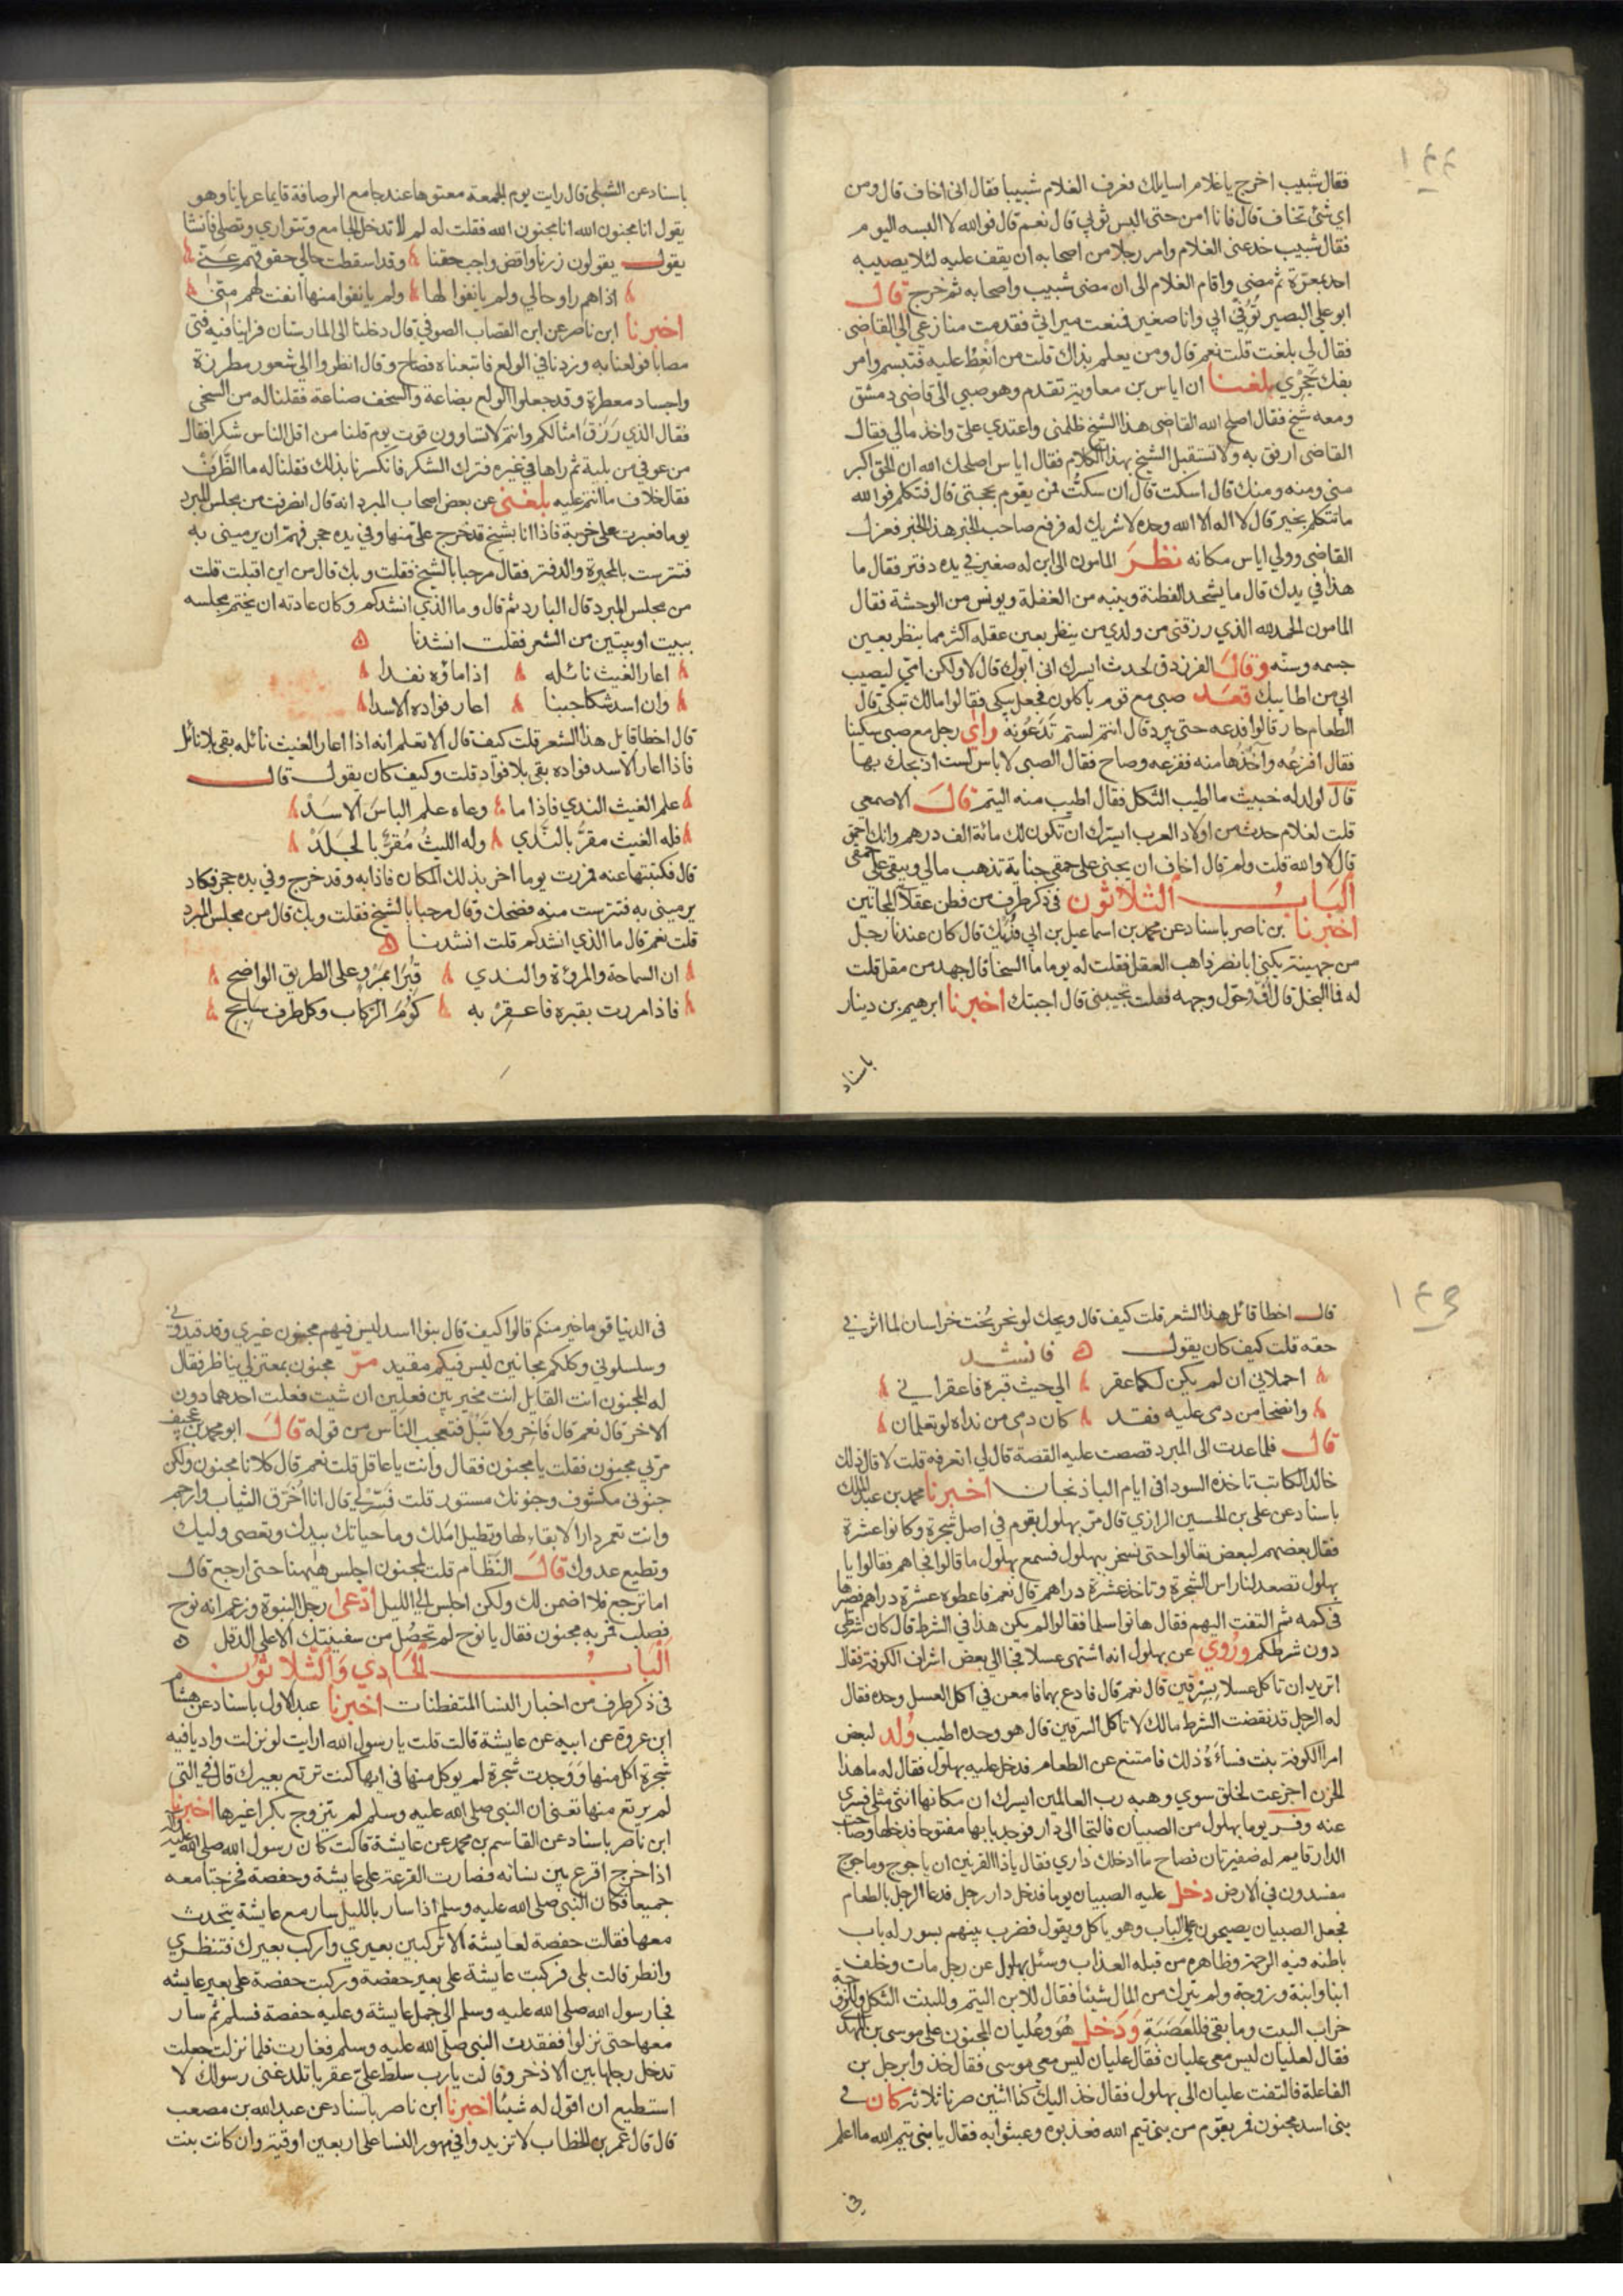 ١٤٤
فقال شبيب اخرج يا غلام اسايلك فعرف الغلام شبيبا فقال انى اخاف قال ومن
اي شئ تخاف قال فانا امن حتى البس ثوبي قال نعم قال فوالله لا البسه اليوم
فقال شبيب خدعنى الغلام وامر رجلا من اصحابه ان يقف عليه لئلا يصيبه
احد بمعرة ثم مضى واقام الغلام الى ان مضى شبيب واصحابه ثم خرج قال
ابو على البصير تُوُفّي ابي وانا صغير فمنعت ميراثي فقدمت منازعي الي القاضى
فقال لي بلغت قلت نعم قال ومن يعلم بذاك قلت من انْعِظُ عليه فتبسم وامر
بفك حَجْرِي بلغنا ان اياس بن معاوية تقدم وهو صبي الى قاضى دمشق
ومعه شيخ فقال اصلح الله القاضى هذا الشيخ ظلمنى واعتدي علىّ واخذ مالي فقال
القاضى ارفق به ولا تستقبل الشيخ بهذا الكلام فقال اياس اصلحك الله ان الحق اكبر
منى ومنه ومنك قال اسكت قال ان سكتُّ فمن يقوم بحجتى قال فتكلم فوالله
ما تتكلم بخير قال لا اله الا الله وحده لا شريك له فرفع صاحب الخبر هذا الخبر فعزل
القاضى وولي اياس مكانه نظرَ المامون الى ابن له صغير في يده دفتر فقال ما
هذا في يدك قال ما يشحذ الفطنة وينبه من الغفلة ويونس من الوحشة فقال
المامون الحمد لله الذي رزقنى من ولدي من ينظر بعين عقله اكثر مما ينظر بعين
جسمه وسنّه وقال الفرزدق لحدث ايسرك انى ابوك قال لا ولكن امي ليصيب
ابي من اطايبك قعد صبي مع قوم ياكلون فجعل يبكى فقالوا مالك تبكى قال
الطعام حار قالوا فدعه حتى يبرد قال انتم لستم تَدَعُونَه وراى رجل مع صبى سكينا
فقال افزعُه وآخُذُها منه ففزعه وصاح فقال الصبى لا باس لست اذبحك بها
قال لولد له خبيث ما اطيب الثكل فقال اطيب منه اليتم قالَ الاصمعى
قلت لغلام حدث من اولاد العرب ايسرك ان تكون لك مائة الف درهم وانك احمق
قال لا والله قلت ولم قال اخاف ان يجنى على حمقى جناية تذهب مالي ويبقى علي حمقى
البَابُ الثلاثون في ذكر طرف من فطن عقلا المجانين
اخبرنا بن ناصر باسناد عن محمد بن اسماعيل بن ابي فُدَيك قال كان عندنا رجل
من جهينة يكنى ابا نضر ذاهب العقل فقلت له يوما ما السخا قال جهد من مقل قلت
له فما البخل قال أُفّ وحَوّل وجهه فقلت تجيبنى قال اجبتك اخبرنا ابرهيم بن دينار
باسناد
باسناد عن الشبلى قال رايت يوم الجمعة معتوها عند جامع الرصافة قايما عريانا وهو
يقول انا مجنون الله انا مجنون الله فقلت له لم لا تدخل الجامع وتتواري وتصلى فانشا
يقول يقولون زرنا واقض واجب حقنا وقد اسقطت حالي حقوقهم عَنّي
اذا هم راو حالي ولم يانفوا لها ولم يانفوا منها انفت لهم منى
اخبرنا ابن ناصر عن ابن القصاب الصوفي قال دخلنا الى المارستان فراينا فيه فتى
مصابا فولعنا به وزدنا في الولع فاتبعناه فصاح وقال انظروا الي شعور مطرزة
واجساد معطرة وقد جعلوا الولع بضاعة والسخف صناعة فقلنا له من السخى
فقال الذي رَزَقَ امثالكم وانتم لا تساوون قوت يوم قلنا من اقل الناس شكرا فقال
من عوفي من بلية ثم راها في غيره فترك الشكر فانكسرنا بذلك فقلنا له ما الظَّرف
فقال خلاف ما انتم عليه بلغنى عن بعض اصحاب المبرد انه قال انصرفت من مجلس المبرد
يوما فعبرت على خربة فاذا انا بشيخ قد خرج علىّ منها وفي يده حجر فهمّ ان يرمينى به
فتترست بالمحبرة والدفتر فقال مرحبا بالشيخ فقلت وبك قال من اين اقبلت قلت
من مجلس المبرد قال البارد ثم قال وما الذي انشدكم وكان عادته ان يختم مجلسه
ببيت او بيتين من الشعر فقلت انشدنا
اعار الغيث نائله اذا ماؤه نفدا
وان اسد شكا جبنا اعار فواده الاسدا
قال اخطا قايل هذا الشعر قلت كيف قال الا تعلم انه اذا اعار الغيث نائله بقى بلا نائل
فاذا اعار الاسد فواده بقى بلا فواد قلت وكيف كان يقول قال
علم الغيث الندي فاذا ما وعاه علم الباسَ الاسَدْ
فله الغيث مقرٌّ بالنّدي وله الليثُ مُقرٌّ بالجَلَدْ
قال فكتبتها عنه فمررت يوما اخر بذلك المكان فاذا به وقد خرج وفي يده حجر فكاد
يرمينى به فتترست منه فضحك وقال مرحبا بالشيخ فقلت وبك قال من مجلس المبرد
قلت نعم قال ما الذي انشدكم قلت انشدنا
ان السماحة والمروءة والندي قَبْرَا بمَرْوِ على الطريق الواضح
فاذا مررت بقبره فاعقِرْ به كُومَ الرّكاب وكل طرف سابح
١٤٥
قال اخطا قائل هذا الشعر قلت كيف قال ويحك لو نحر بُخت خراسان لما اثر في
حقه قلت كيف كان يقول فانشد
احملاني ان لم يكن لكما عقر الي جنب قبره فاعقراني
وانضحا من دمى عليه فقد كان دمى من نداه لو تعلمان
قال فلما عدت الى المبرد قصصت عليه القصة قال لي اتعرفه قلت لا قال ذلك
خالد الكاتب تاخذه السودا في ايام الباذنجان اخبرنا محمد بن عبد الملك
باسناد عن على بن الحسين الرازي قال مرّ بهلول بقوم في اصل شجرة وكانوا عشرة
فقال بعضهم لبعض تعالوا حتى نسخر ببهلول فسمع بهلول ما قالوا فجاهم فقالوا يا
بهلول تصعد لنا راس الشجرة وتاخذ عشرة دراهم قال نعم فاعطوه عشرة دراهم فصرها
في كمه ثم التفت اليهم فقال هاتوا سلما فقالوا لم يكن هذا في الشرط قال كان شرطى
دون شرطكم ورُوي عن بهلول انه اشتهى عسلا فجا الي بعض اشراف الكوفة فقال
اتريد ان تاكل عسلا بسِرْقين قال نعم قال فادع بهما فامعن في اكل العسل وحده فقال
له الرجل قد نقضت الشرط مالك لا تاكل السرقين قال هو وحده اطيب وُلد لبعض
امرا الكوفة بنت فساءَهُ ذلك فامتنع عن الطعام فدخل عليه بهلول فقال له ما هذا
الحزن اجزعت لخلق سوي وهبه رب العالمين ايسرك ان مكانها ابن مثلى فسري
عنه وفرّ يوما بهلول من الصبيان فالتجا الى دار فوجد بابها مفتوحا فدخلها وصاحب
الدار قايم له ضفيرتان فصاح ما ادخلك داري فقال يا ذا القرنين ان ياجوج وماجوج
مفسدون في الارض دخل عليه الصبيان يوما فدخل دار رجل فدعا الرجل بالطعام
فجعل الصبيان يصيحون على الباب وهو ياكل ويقول فضرب بينهم بسور له باب
باطنه فيه الرحمة وظاهره من قبله العذاب وسئل بهلول عن رجل مات وخلف
ابنا وابنة وزوجة ولم يترك من المال شيئا فقال للابن اليتم وللبنت الثكل وللزوجة
خراب البيت وما بقى فللعَصَبَةِ وَدَخل هُوَ وعُليان المجنون على موسى بن المهدي
فقال لعليان ايش معى عليان فقال عليان ايش معى موسى فقال خذوا برجل بن
الفاعلة فالتفت عليان الى بهلول فقال خذ اليك كنا اثنين صرنا ثلاثة كان في
بنى اسد مجنون فمر بقوم من بنى تيم الله فعذبوه وعبثوا به فقال يا بنى تيم الله ما اعلم
في
في الدنيا قوما خير منكم قالوا كيف قال بنوا اسد ليس فيهم مجنون غيري وقد قيدوني
وسلسلوني وكلكم مجانين ليس فيكم مقيد مرّ مجنون بمعتزلي يناظر فقال
له المجنون انت القايل انت مخير بين فعلين ان شيت فعلت احدهما دون
الاخر قال نعم قال فَاخْر ولا تَبُلْ فتعجب الناس من قوله قالَ ابو محمد بن عجيف
مرّ بي مجنون فقلت يا مجنون فقال وانت يا عاقل قلت نعم قال كلانا مجنون ولكن
جنونى مكشوف وجنونك مستور قلت فَسّرْ لي قال انا اُخَرّق الثياب وارجم
وانت تعمر دارا لا بقاء لها وتطيل املك وما حياتك بيدك وتعصى وليك
وتطيع عدوك قالَ النّظام قلت لمجنون اجلس ههنا حتى ارجع قال
اما ترجع فلا اضمن لك ولكن اجلس الي الليل ادّعى رجل النبوة وزعم انه نوح
فصلب فمر به مجنون فقال يا نوح لم تحصُل من سفينتك الا على الدقل
البابُ الحَادِي وَالثلاثون
في ذكر طرف من اخبار النسا المتفطنات اخبرنا عبد الاول باسناد عن هشام
ابن عروة عن ابيه عن عايشة قالت قلت يا رسول الله ارايت لو نزلت واديا فيه
شجرة اكل منها وَوَجدت شجرة لم يوكل منها في ايها كنت ترتع بعيرك قال في التى
لم يرتع منها تعنى ان النبى صلى الله عليه وسلم لم يتزوج بكرا غيرها اخبرنا
ابن ناصر باسناد عن القاسم بن محمد عن عايشة قالت كان رسول الله صلى الله عليه وسلم
اذا خرج اقرع بين نسائه فصارت القرعة على عايشة وحفصة فخرجتا معه
جميعا فكان النبى صلى الله عليه وسلم اذا سار بالليل سار مع عايشة يتحدث
معها فقالت حفصة لعايشة الا تركبين بعيري واركب بعيرك فتنظري
وانظر قالت بلى فركبت عايشة على بعير حفصة وركبت حفصة على بعير عايشه
فجا رسول الله صلى الله عليه وسلم الى جمل عايشة وعليه حفصة فسلم ثم سار
معها حتى نزلوا ففقدت النبى صلى الله عليه وسلم فغارت فلما نزلت جعلت
تدخل رجلها بين الاذخر وقالت يا رب سلط علىّ عقربا تلدغنى رسولك لا
استطيع ان اقول له شيئا اخبرنا ابن ناصر باسناد عن عبد الله بن مصعب
قال قال عُمر بن الخطاب لا تزيدوا في مهور النسا على اربعين اوقية وان كانت بنت